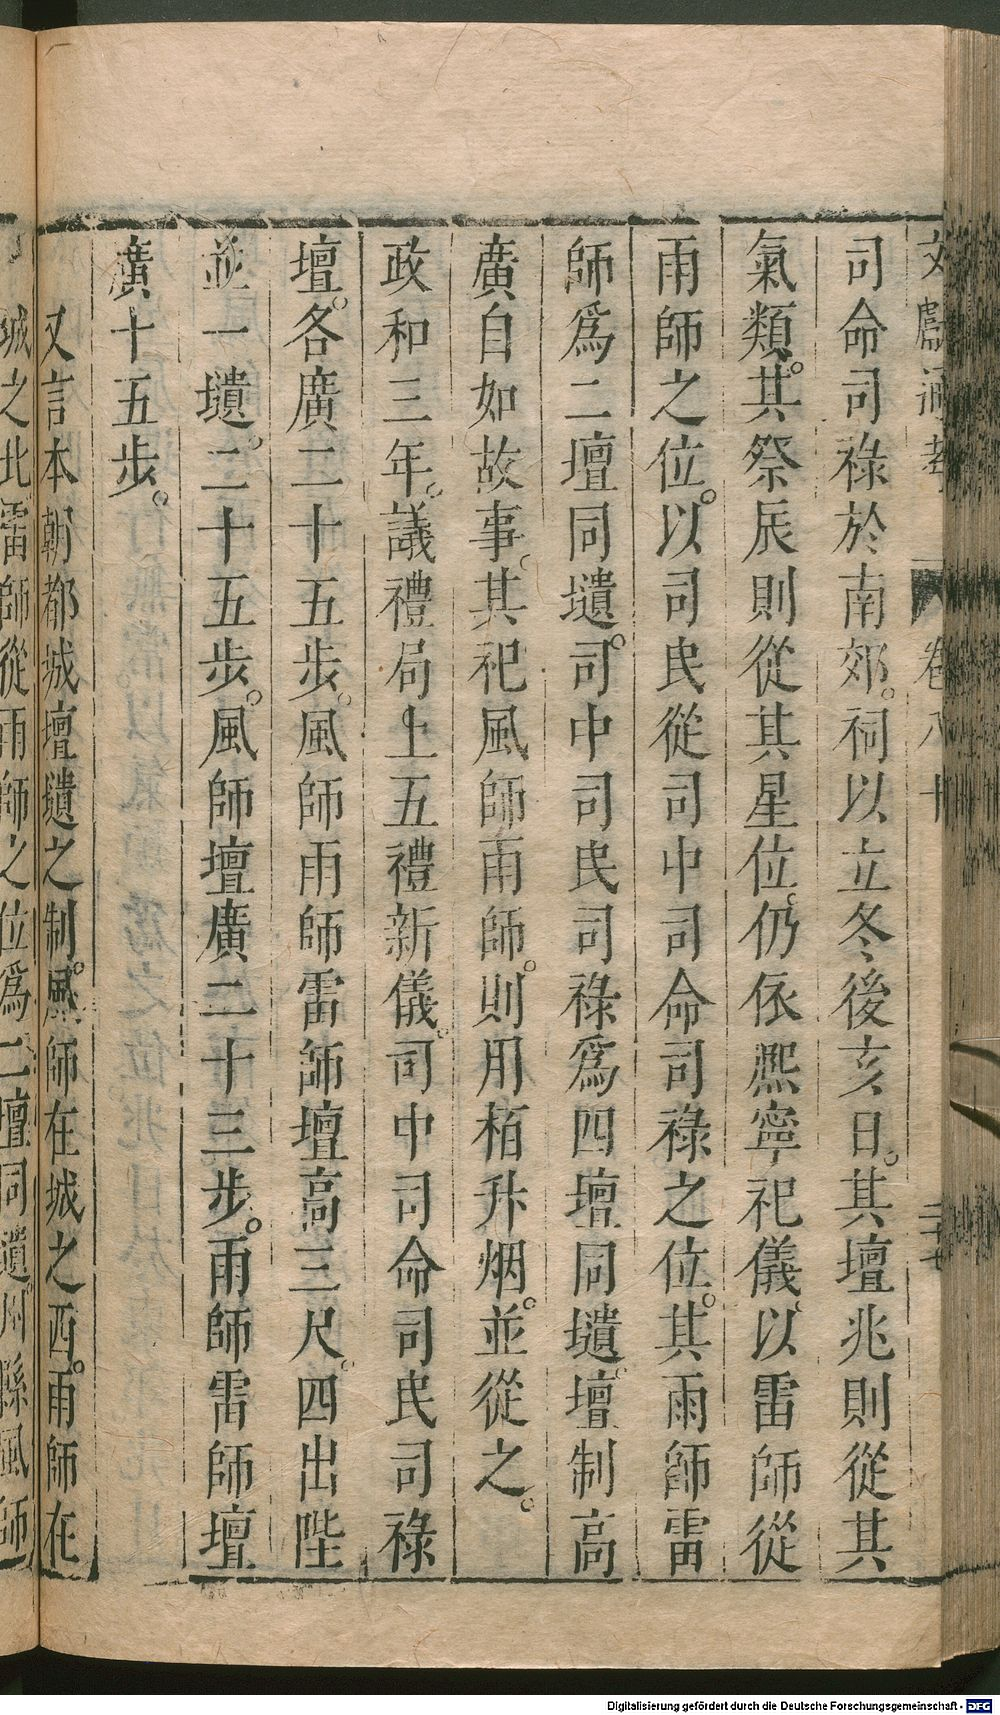 文獻通考 卷八十 二十七
司命司祿於南郊。祠以立冬後亥日。其壇兆則從其
氣類。其祭辰則從其星位。仍依熈寧祀儀。以雷師從
雨師之位。以司民從司中司命司祿之位。其雨師雷
師爲二壇同壝。司中司民司祿爲四壇同壝。壇制高
廣自如故事。其祀風師雨師。則用栢升烟。並從之。
政和三年。議禮局上五禮新儀。司中司命司民司祿
壇。各廣二十五步。風師雨師雷師壇高三尺。四出陛
並一壝。二十五步。風師壇廣二十三步。雨師雷師壇
廣十五步。
又言本朝都城壇壝之制。風師在城之西。雨師在
城之北雷師從雨師之位爲二壇同壝。州縣風師
Digitalisierung gefördert durch die Deutsche Forschungsgemeinschaft - DFG